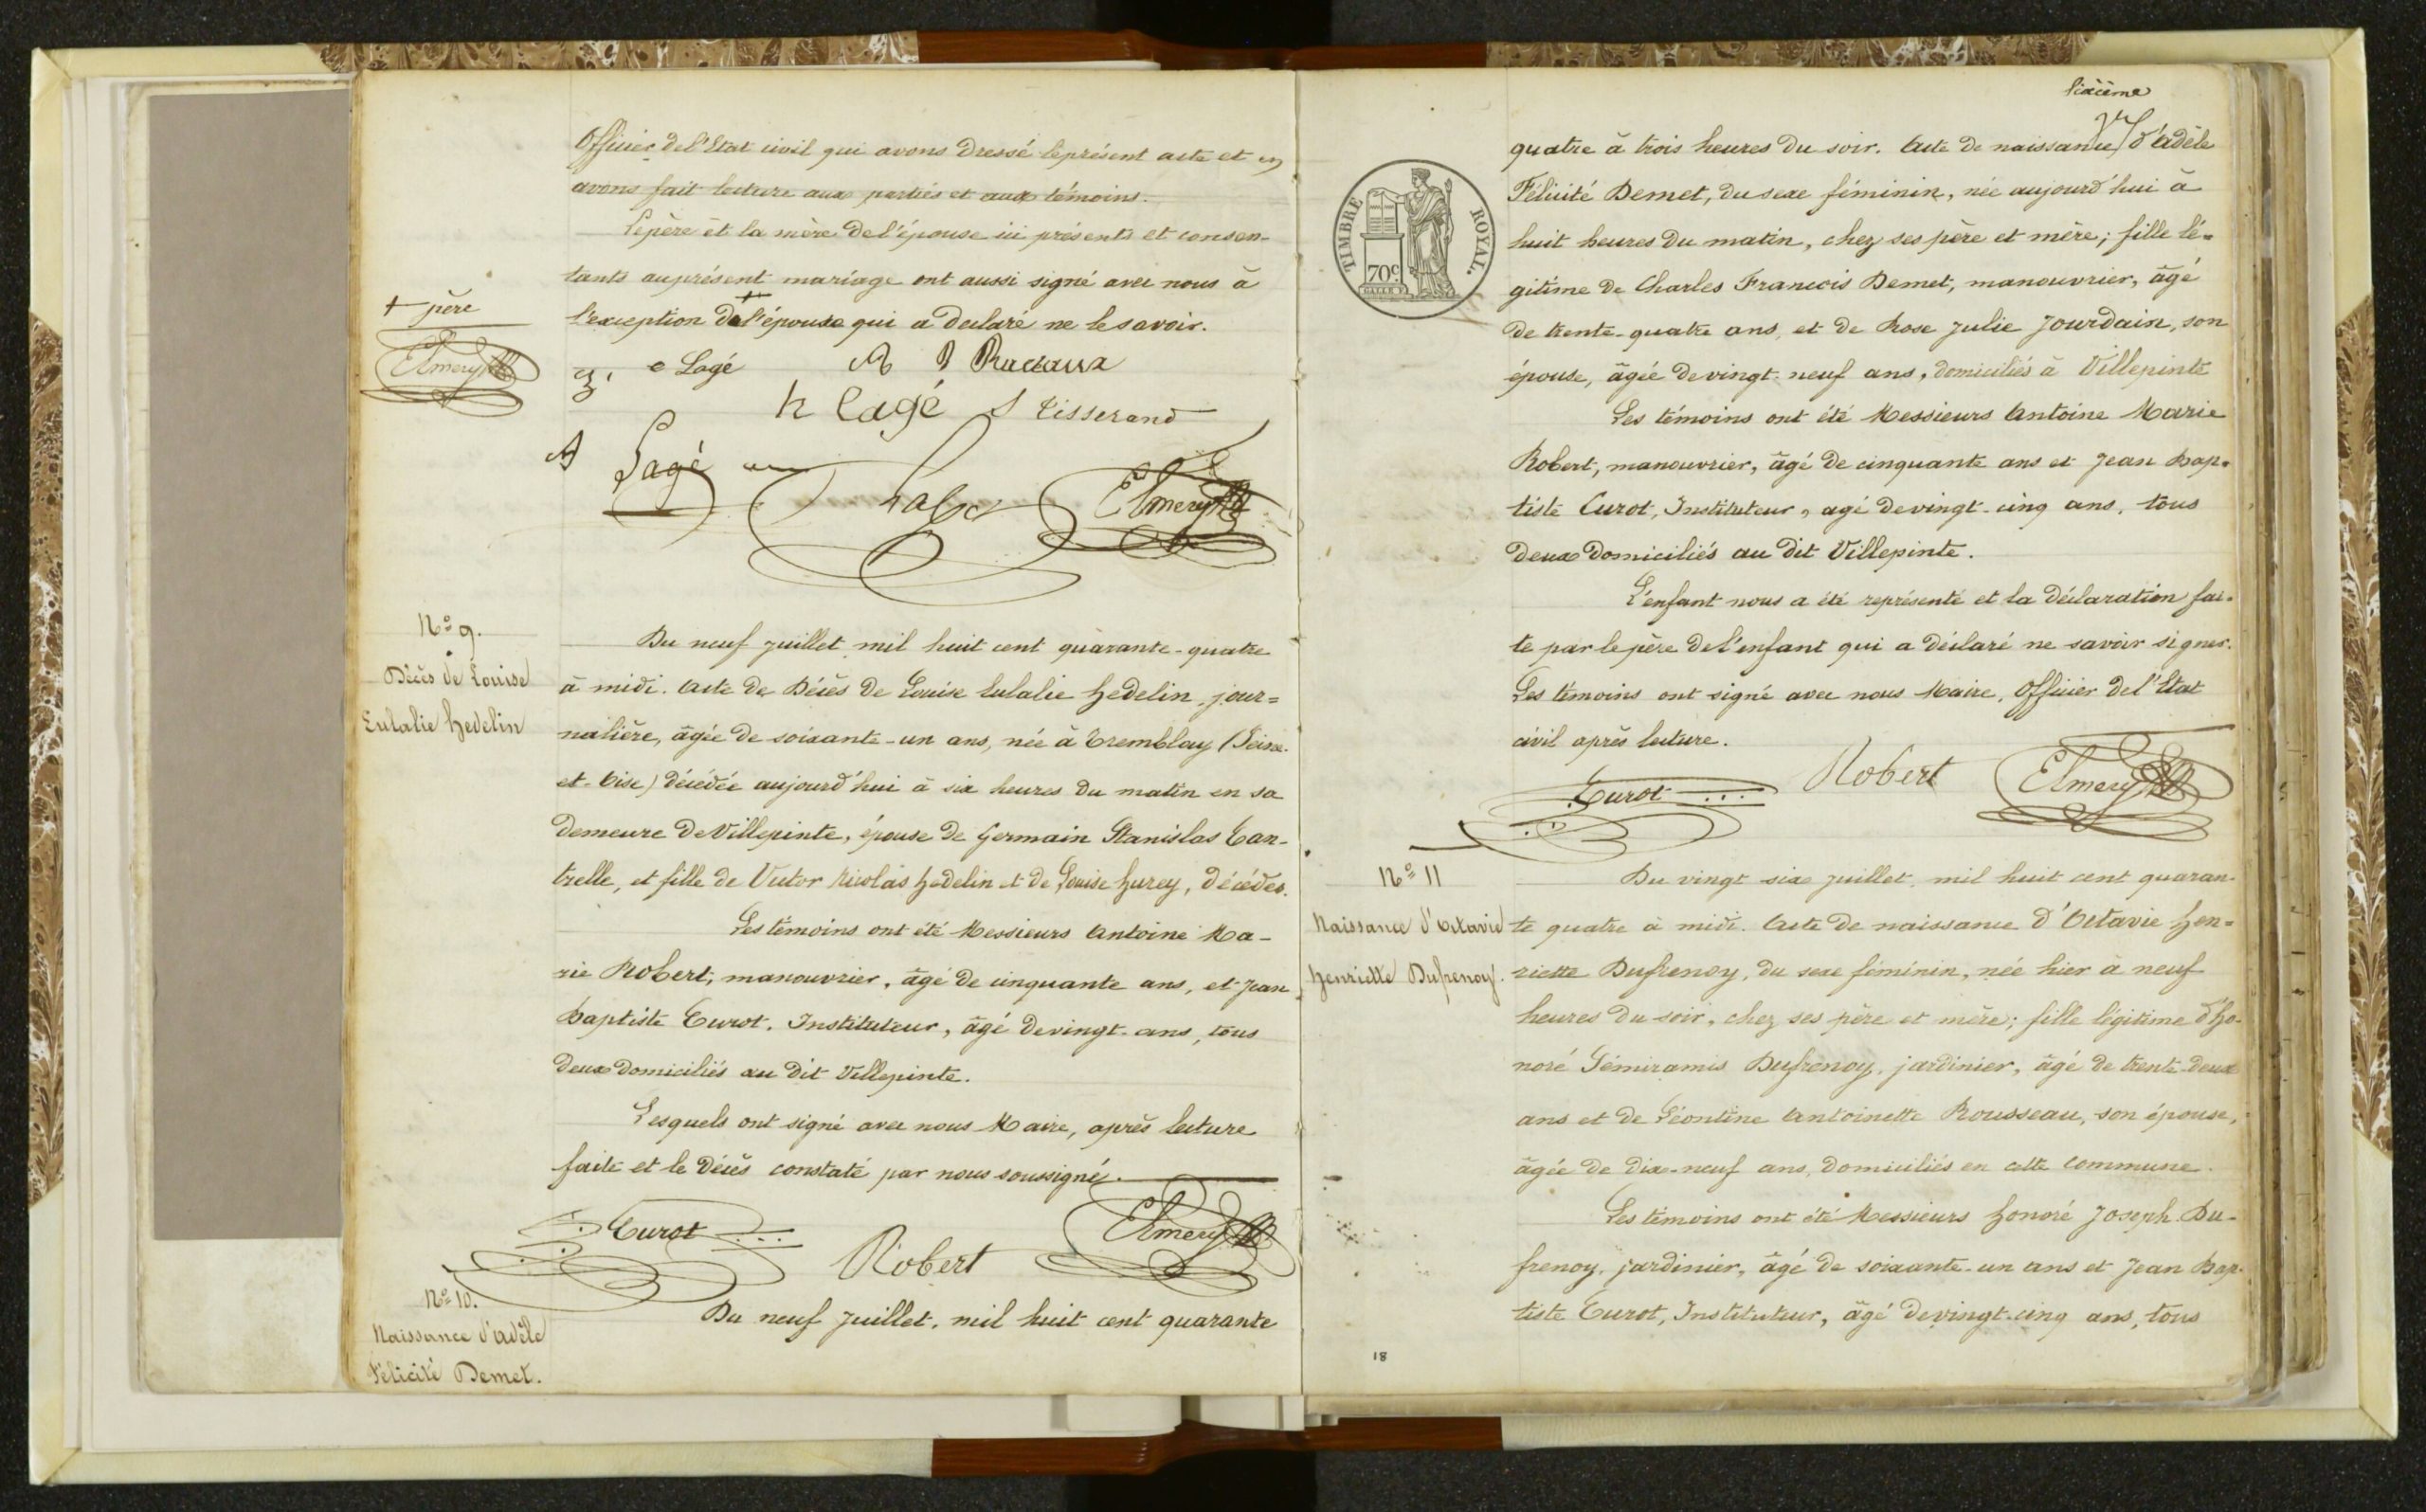 Officier de l'Etat civil qui avons dressé le présent acte et en
avons fait lecture aux parties et aux témoins.
Le père et la mère de l'épouse ici présents et consen-
tants au présent mariage ont aussi signé avec nous à
+ père
l'exception de l'épouse qui a déclaré ne le savoir.
Elmery
Lagé
h lagé
Tisserand
Lagé
Elmery
No 9.
Décès de Louise
Eulalie Hedelin
Du neuf juillet mil huit cent quarante-quatre
à midi. Acte de Décès de Louise Eulalie Hedelin, jour=
nalière, âgée de soixante-un ans, née à Tremblay (Seine-
et-Oise) décédée aujourd'hui à six heures du matin en sa
demeure de Villepinte, épouse de Germain Stanislas Can-
trelle, et fille de Victor Nicolas Hedelin et de Louise Hurey, décédés.
Les témoins ont été Messieurs Antoine Ma-
rie Robert, manouvrier, âgé de cinquante ans, et Jean
Baptiste Curot, Instituteur, âgé de vingt-ans, tous
deux domiciliés au dit Villepinte.
Lesquels ont signé avec nous Maire, après lecture
faite et le décès constaté par nous soussigné.
Curot
Robert
Elmery
No 10.
Naissance d'Adèle
Félicité Demet.
Du neuf juillet, mil huit cent quarante
Sixième
quatre à trois heures du soir. Acte de naissance d'Adèle
Félicité Demet, du sexe féminin, née aujourd'hui à
huit heures du matin, chez ses père et mère; fille lé=
gitime de Charles François Demet, manouvrier, âgé
de trente-quatre ans, et de Rose Julie Jourdain, son
épouse, âgée de vingt-neuf ans, domiciliés à Villepinte
TIMBRE ROYAL.
70c
Les témoins ont été Messieurs Antoine Marie
Robert, manouvrier, âgé de cinquante ans et Jean Bap-
tiste Curot, Instituteur, agé de vingt-cinq ans, tous
deux domiciliés au dit Villepinte.
L'enfant nous a été représenté et la déclaration fai-
te par le père de l'enfant qui a déclaré ne savoir signer.
Les témoins ont signé avec nous Maire, Officier de l'Etat
civil après lecture.
Curot
Robert
Elmery
No 11
Naissance d'Octavie
Henriette Dufrenoy.
Du vingt six juillet, mil huit cent quaran-
te quatre à midi. Acte de naissance d'Octavie Hen=
riette Dufrenoy, du sexe féminin, née hier à neuf
heures du soir, chez ses père et mère; fille légitime d'Ho-
noré Sémiramis Dufrenoy, jardinier, âgé de trente-deux
ans et de Léontine Antoinette Rousseau, son épouse,
âgée de dix-neuf ans, domiciliés en cette commune.
Les témoins ont été Messieurs Honoré Joseph Du-
frenoy, jardinier, âgé de soixante-un ans et Jean Bap-
tiste Curot, Instituteur, âgé de vingt-cinq ans, tous
18